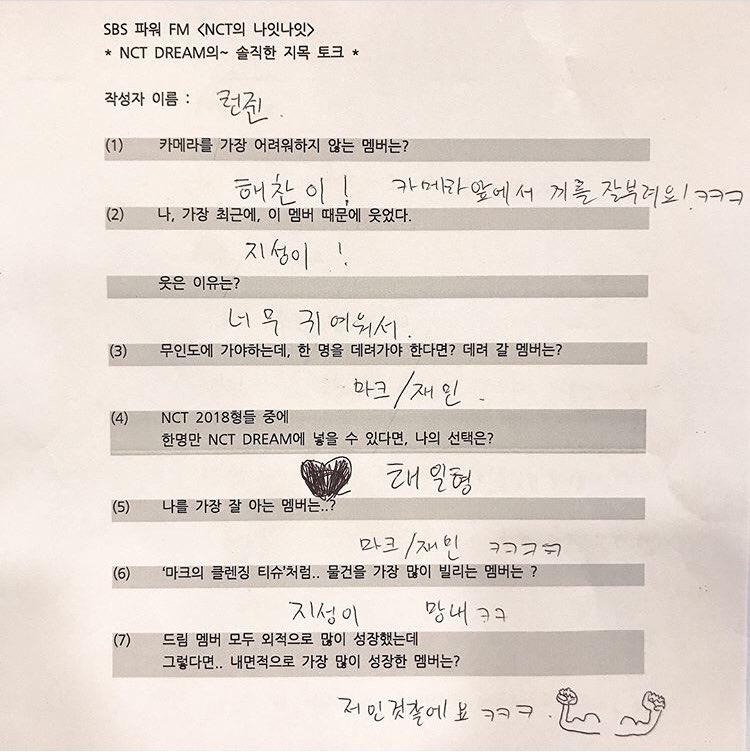 SBS 파워 FM <NCT의 나잇나잇>
* NCT DREAM의~ 솔직한 지목 토크 *
작성자 이름 : 런쥔.
(1) 카메라를 가장 어려워하지 않는 멤버는?
해찬이! 카메라앞에서 끼를 잘부려요! ㅋㅋㅋ
(2) 나, 가장 최근에, 이 멤버 때문에 웃었다.
지성이!
웃은 이유는?
너무 귀여워서.
(3) 무인도에 가야하는데, 한 명을 데려가야 한다면? 데려 갈 멤버는?
마크/재민.
(4) NCT 2018형들 중에
한명만 NCT DREAM에 넣을 수 있다면, 나의 선택은?
태일형
(5) 나를 가장 잘 아는 멤버는..?
마크/재민 ㅋㅋㅋㅋ
(6) ‘마크의 클렌징 티슈’처럼.. 물건을 가장 많이 빌리는 멤버는 ?
지성이 망내 ㅋㅋ
(7) 드림 멤버 모두 외적으로 많이 성장했는데
그렇다면.. 내면적으로 가장 많이 성장한 멤버는?
저인것찮에요 ㅋㅋㅋ.